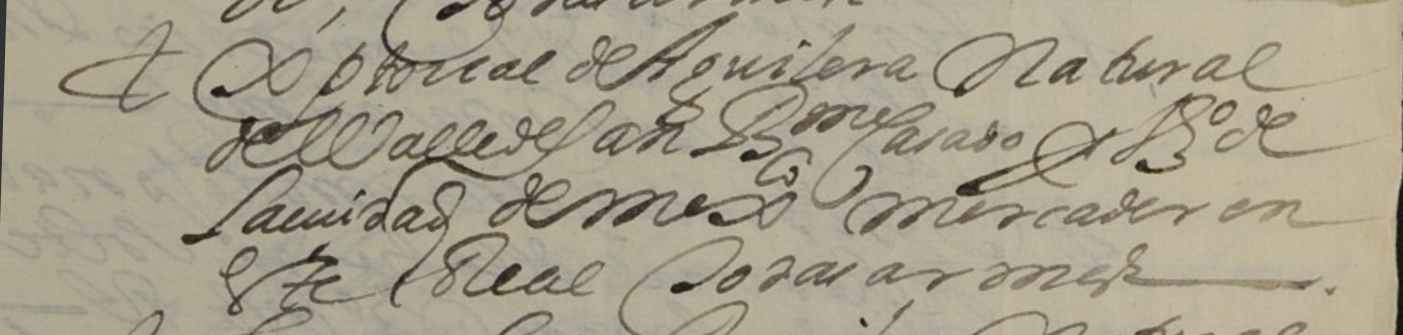 Xptoual de Aguilera Natural
del Valle de San Bme Casado y Vo de
la ciudad de mexco mercader en
este Real Todas armas